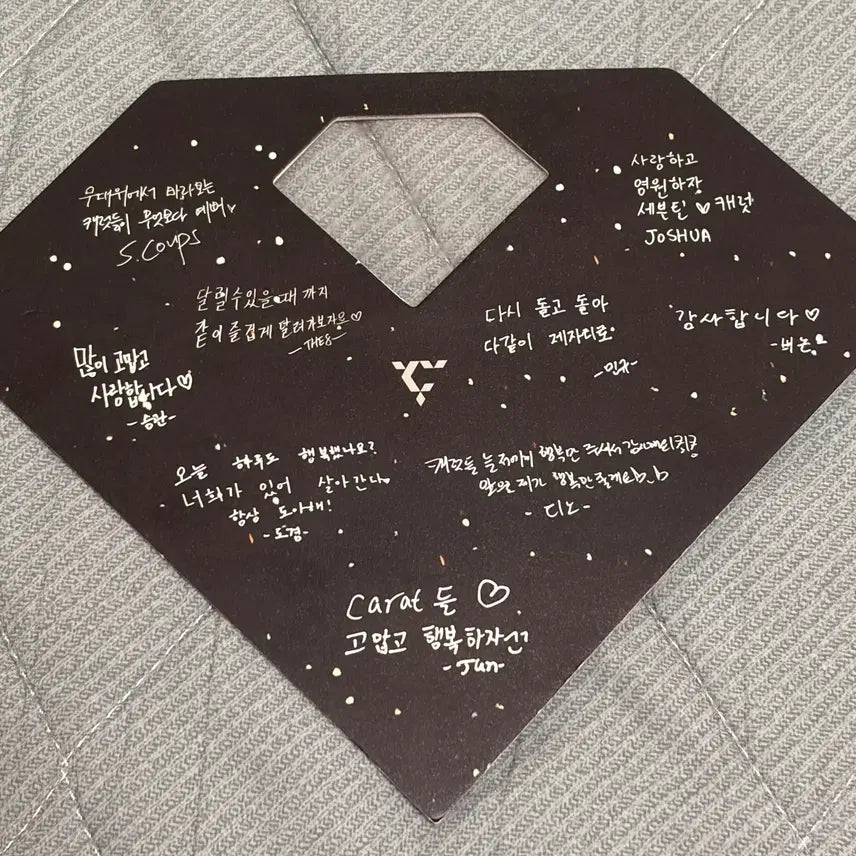 무대위에서 바라보는
캐럿들이 무엇보다 예뻐♥
S.COUPS
사랑하고
영원하장
세븐틴 ♡ 캐럿
JOSHUA
달릴수있을때 까지
같이 즐겁게 달려가보자요♡
-THE8-
다시 돌고 돌아
다같이 제자리로
-민규-
감사합니다♡
-버논-
많이 고맙고
사랑합니다♡
-승관-
오늘 하루도 행복했나요?
너희가 있어 살아간다
항상 도아해!
-도겸-
캐럿들 늘 저에게 행복만 주셔서
앞으로 제가 행복만 줄게요b_b
-디노-
carat 들 ♡
고맙고 행복하자
-Jun-